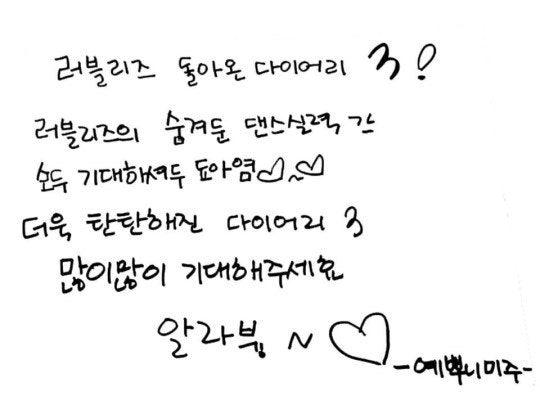 러블리즈 돌아온 다이어리 3!
러블리즈의 숨겨둔 댄스실력 각
모두 기대하셔두 됴아염♡~♡
더욱 탄탄해진 다이어리 3
많이많이 기대해주세요
알라븅 ~ ♡
-예쁘니미주-